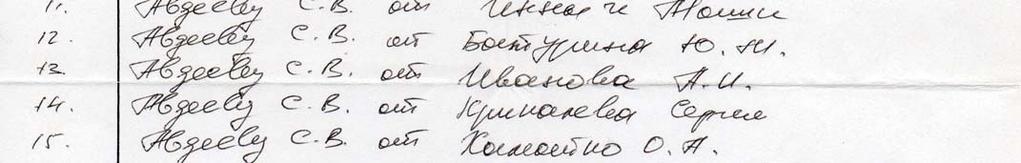 11. Авдееву С.В. от Инна и
12. Авдееву С.В. от Батурина Ю.М.
13. Авдееву С.В. от Иванова А.И.
14. Авдееву С.В. от Крикалева Сергея
15. Авдееву С.В. от Хаматно О.А.